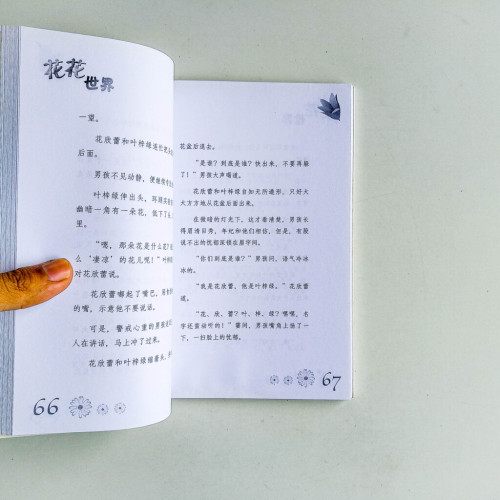 花花
世界
一望。
花欣蕾和叶梓绿连忙把
后面。
男孩不见动静，便
叶梓绿伸出头，
幽暗一角有一朵花，低下了
里。
“嘿，那朵花是什么花？
么‘凄凉’的花儿呢！”叶梓
对花欣蕾说。
花欣蕾嘟起了嘴巴，
的嘴，示意他不要说话。
可是，警戒心重的男孩
人在讲话，马上冲了过来。
花欣蕾和叶梓绿缩着头，
66
花盆后退去。
“是谁？到底是谁？快出来，不要再躲
了！”男孩大声喝道。
花欣蕾和叶梓绿自知无所遁形，只好大
大方方地从花盆后面出来。
在微暗的灯光下，这才看清楚，男孩长
得眉清目秀，年纪和他们相仿，但是，有股
说不出的忧郁深锁在眉宇间。
“你们到底是谁？”男孩问，语气冷冰
冰的。
“我是花欣蕾，他是叶梓绿。”花欣蕾
道。
“花、欣、蕾？叶、梓、绿？嘿嘿，名
字还蛮动听的！”霎间，男孩嘴角上扬了一
下，一扫脸上的忧郁。
67